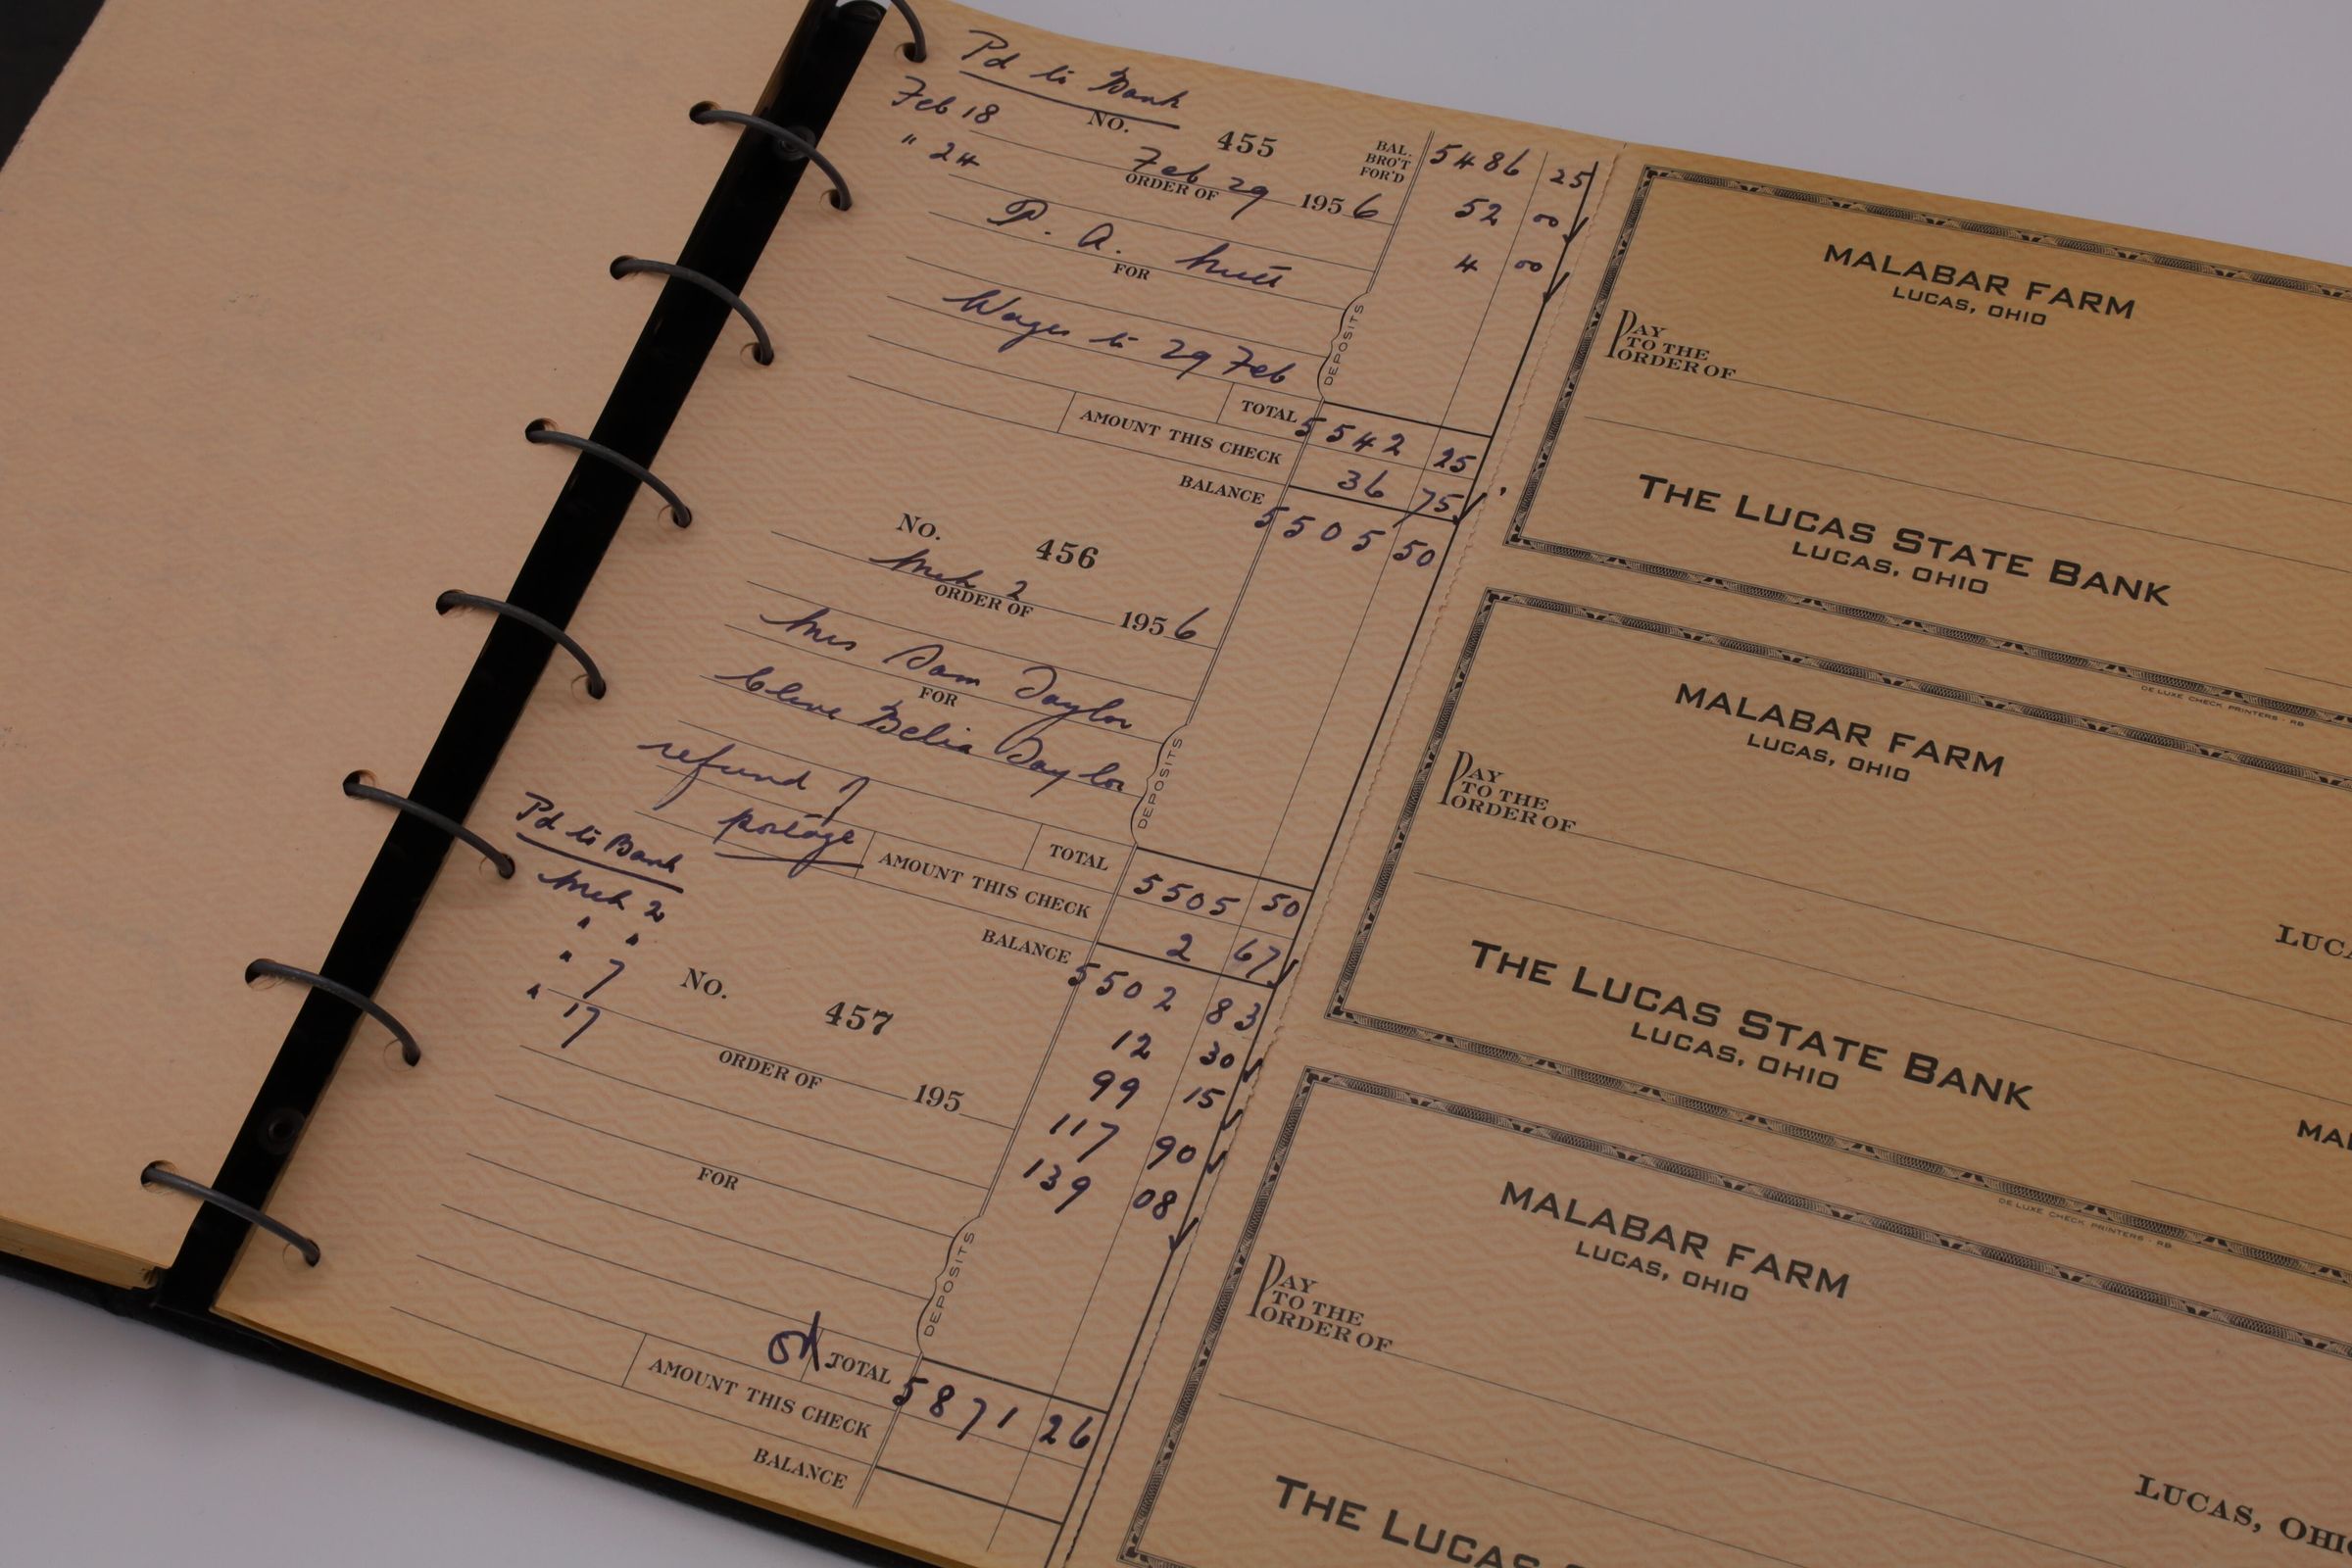 Pd to Bank
Feb 18
" 24
NO. 455
Feb 29 1956
ORDER OF
P. A. Nutt
FOR
Wages to 29 Feb
BAL. BRO'T FOR'D
5486 25
52 00
4 00
DEPOSITS
TOTAL 5542 25
AMOUNT THIS CHECK 36 75
BALANCE 5505 50
NO. 456
Mch 2 1956
ORDER OF
Mrs Sam Taylor
FOR
Taylor
refund of
postage
DEPOSITS
TOTAL 5505 50
AMOUNT THIS CHECK 2 67
BALANCE 5502 83
Pd to Bank
Mch 2 12 30
" " 99 15
" 7 117 90
" 17 139 08
NO. 457
ORDER OF 195
FOR
DEPOSITS
OK TOTAL 5871 26
AMOUNT THIS CHECK
BALANCE
MALABAR FARM
LUCAS, OHIO
PAY TO THE ORDER OF
THE LUCAS STATE BANK
LUCAS, OHIO
DE LUXE CHECK PRINTERS - RB
MALABAR FARM
LUCAS, OHIO
PAY TO THE ORDER OF
LUCA
THE LUCAS STATE BANK
LUCAS, OHIO
MAL
DE LUXE CHECK PRINTERS - RB
MALABAR FARM
LUCAS, OHIO
PAY TO THE ORDER OF
LUCAS, OHI
THE LUCAS